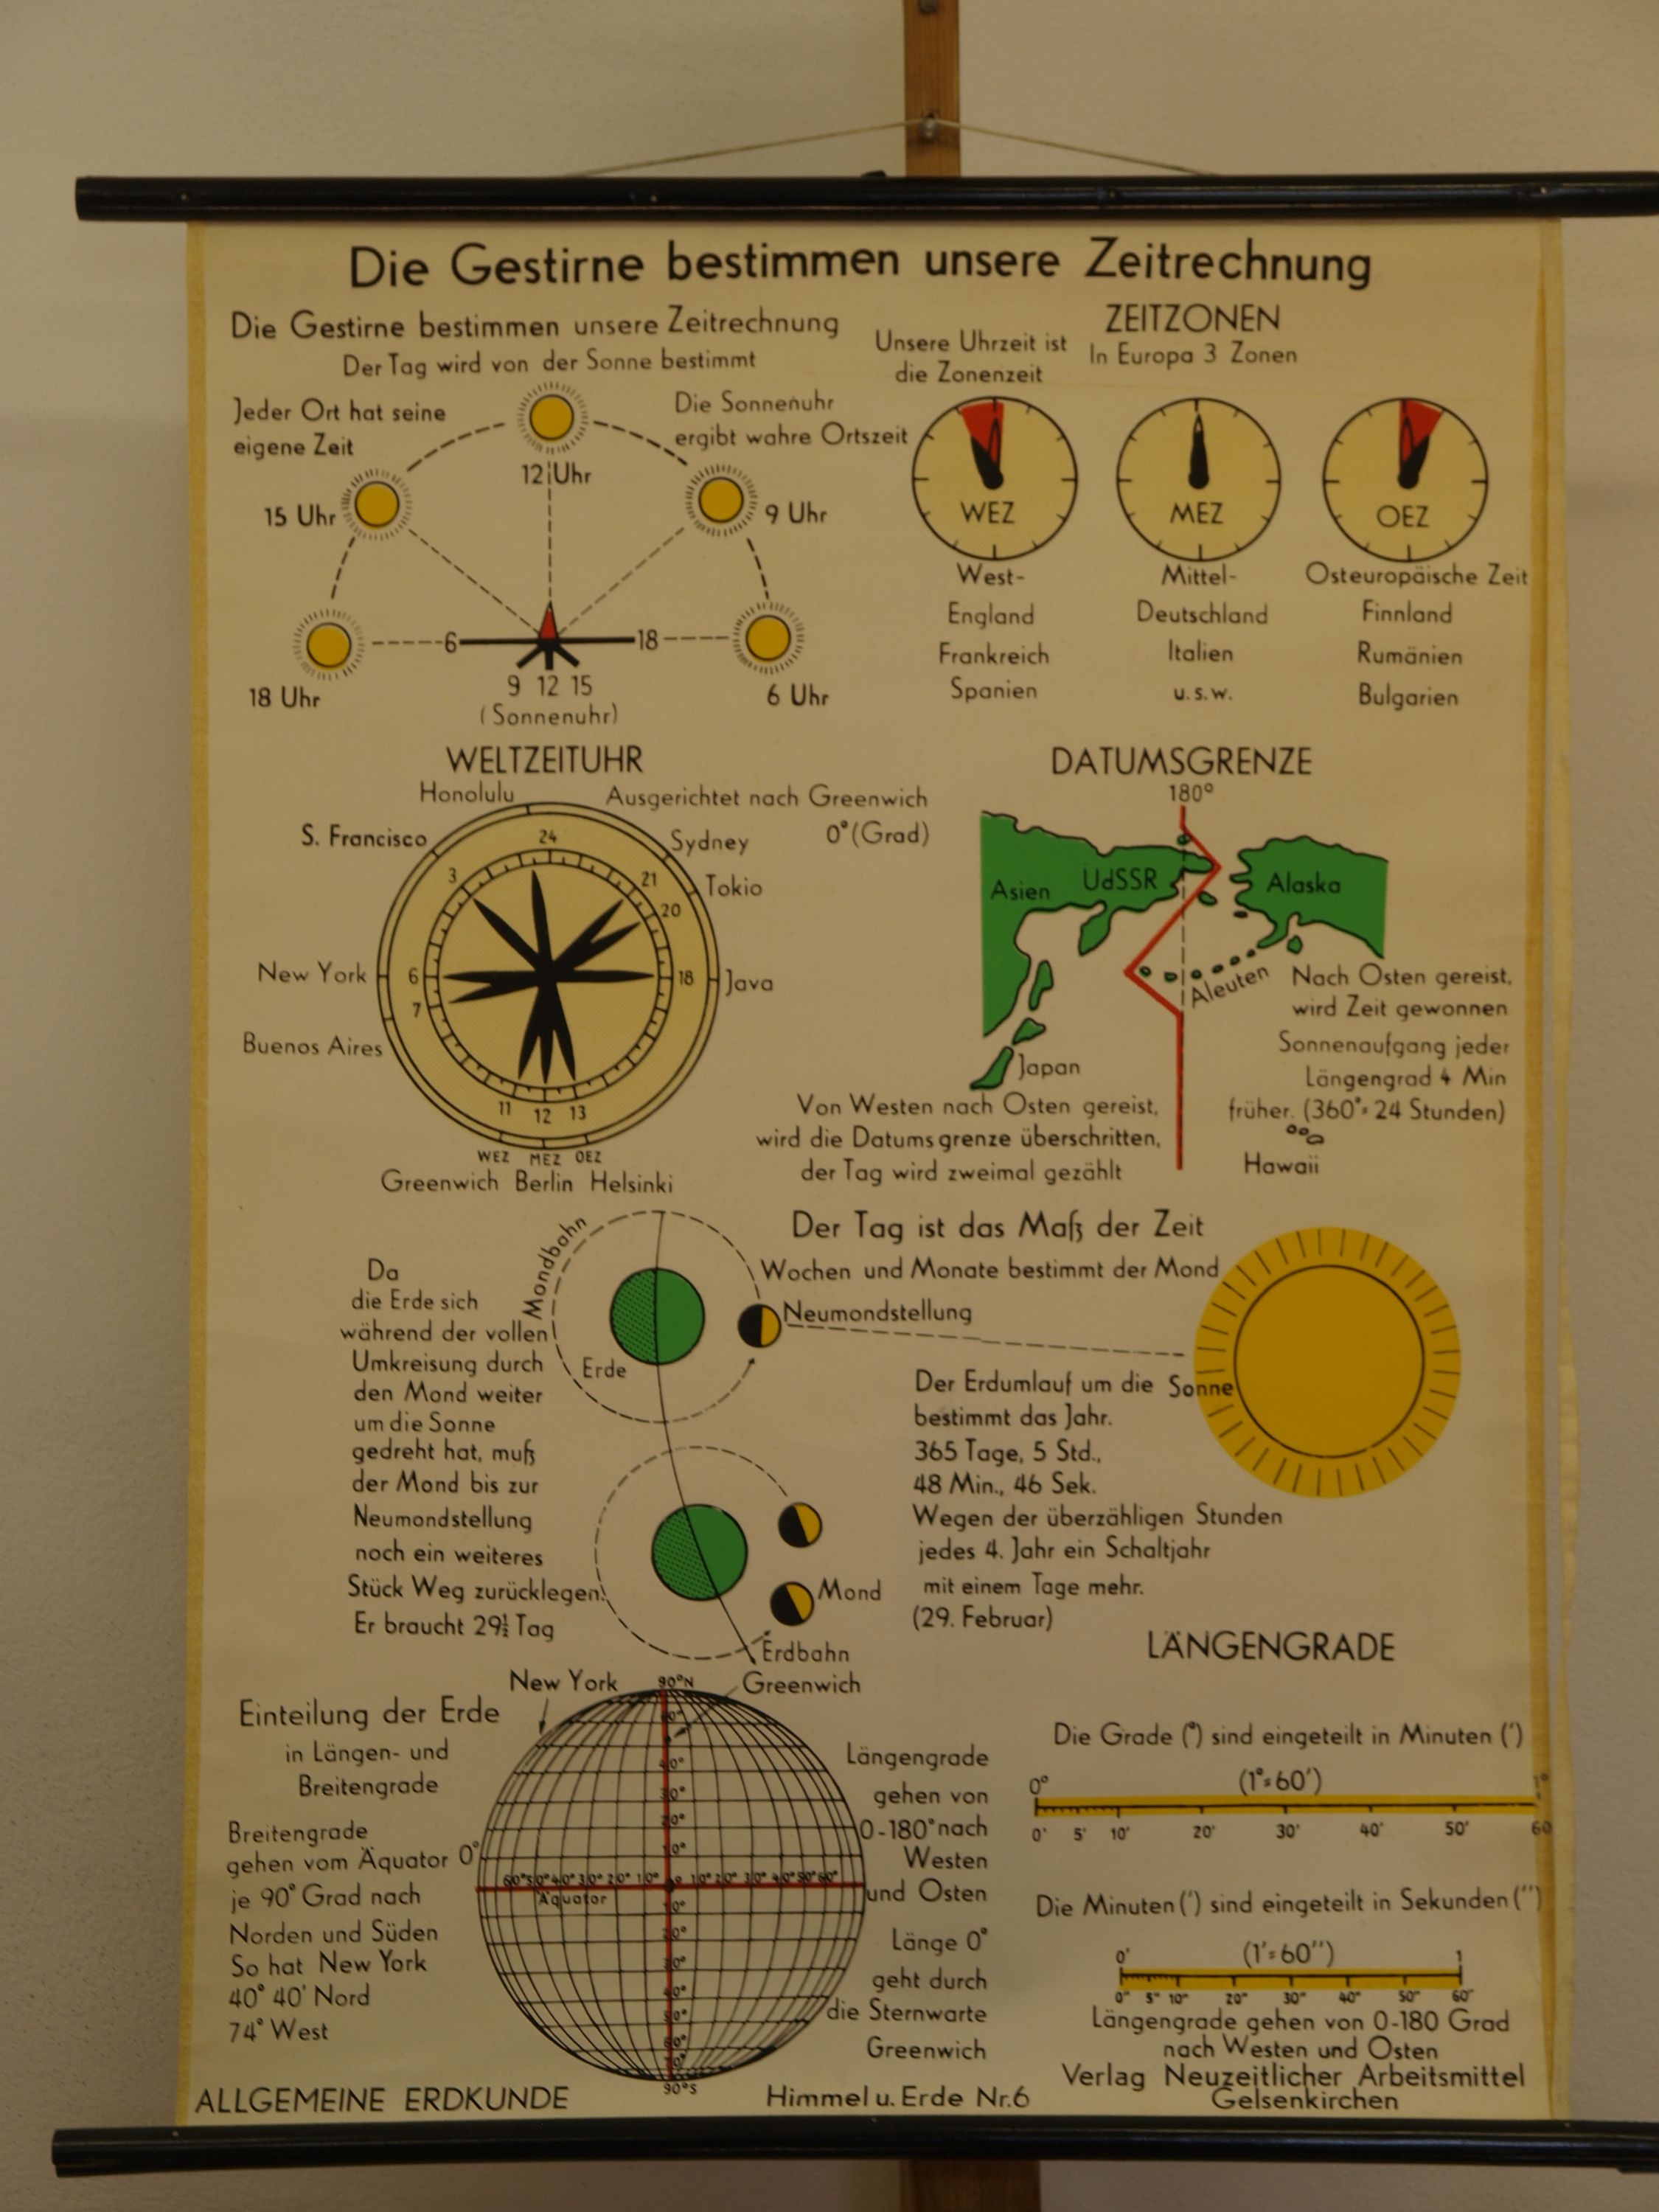 Die Gestirne bestimmen unsere Zeitrechnung
Die Gestirne bestimmen unsere Zeitrechnung
Der Tag wird von der Sonne bestimmt
Jeder Ort hat seine
eigene Zeit
Die Sonnenuhr
ergibt wahre Ortszeit
12 Uhr
15 Uhr
9 Uhr
18 Uhr
6 Uhr
6
18
9 12 15
(Sonnenuhr)
Unsere Uhrzeit ist
die Zonenzeit
ZEITZONEN
In Europa 3 Zonen
WEZ
MEZ
OEZ
West-
England
Frankreich
Spanien
Mittel-
Deutschland
Italien
u.s.w.
Osteuropäische Zeit
Finnland
Rumänien
Bulgarien
WELTZEITUHR
Ausgerichtet nach Greenwich
0° (Grad)
Honolulu
S. Francisco
Sydney
Tokio
New York
Java
Buenos Aires
24
3
21
20
6
18
7
11
12
13
WEZ MEZ OEZ
Greenwich Berlin Helsinki
DATUMSGRENZE
180°
Asien
UdSSR
Alaska
Aleuten
Japan
Nach Osten gereist,
wird Zeit gewonnen
Sonnenaufgang jeder
Längengrad 4 Min
früher. (360°=24 Stunden)
Hawaii
Von Westen nach Osten gereist,
wird die Datumsgrenze überschritten,
der Tag wird zweimal gezählt
Der Tag ist das Maß der Zeit
Wochen und Monate bestimmt der Mond
Mondbahn
Neumondstellung
Erde
Da
die Erde sich
während der vollen
Umkreisung durch
den Mond weiter
um die Sonne
gedreht hat, muß
der Mond bis zur
Neumondstellung
noch ein weiteres
Stück Weg zurücklegen.
Er braucht 29½ Tag
Mond
Erdbahn
Der Erdumlauf um die Sonne
bestimmt das Jahr.
365 Tage, 5 Std.,
48 Min., 46 Sek.
Wegen der überzähligen Stunden
jedes 4. Jahr ein Schaltjahr
mit einem Tage mehr.
(29. Februar)
Einteilung der Erde
in Längen- und
Breitengrade
Breitengrade
gehen vom Äquator 0°
je 90° Grad nach
Norden und Süden
So hat New York
40° 40' Nord
74° West
New York
90°N
Greenwich
40°
30°
20°
10°
60° 50° 40° 30° 20° 10° 0 10° 20° 30° 40° 50° 60°
Äquator
10°
20°
30°
40°
50°
60°
70°
90°S
Längengrade
gehen von
0-180° nach
Westen
und Osten
Länge 0°
geht durch
die Sternwarte
Greenwich
LÄNGENGRADE
Die Grade (°) sind eingeteilt in Minuten (')
(1°=60')
0°
1°
0' 5' 10' 20' 30' 40' 50' 60
Die Minuten (') sind eingeteilt in Sekunden ('')
(1'=60'')
0'
1
0" 5" 10" 20" 30" 40" 50" 60"
Längengrade gehen von 0-180 Grad
nach Westen und Osten
Verlag Neuzeitlicher Arbeitsmittel
Gelsenkirchen
ALLGEMEINE ERDKUNDE
Himmel u. Erde Nr. 6